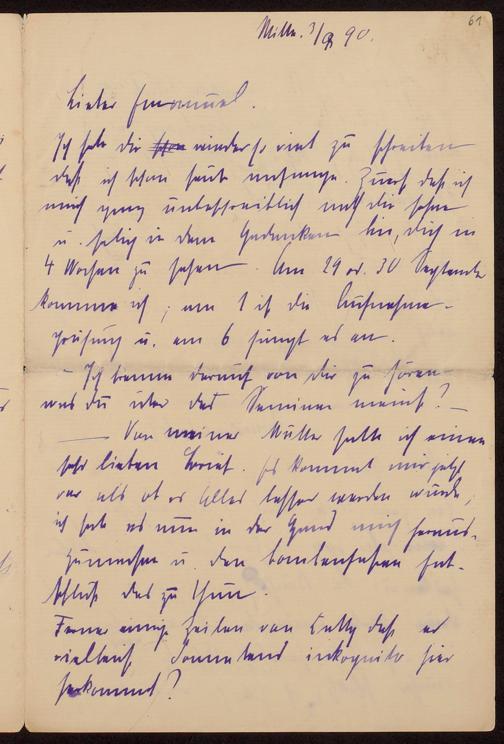 61
Mittw. 3/9 90.
Lieber Emanuel.
Ich hab dir schon wieder so viel zu schreiben
daß ich schon heut anfange. Zuerst daß ich
mich ganz unbeschreiblich nach dir sehne
u. selig in dem Gedanken bin, dich in
4 Wochen zu sehen. Am 29 od. 30 September
komme ich; am 1 ist die Aufnahme-
prüfung u. am 6 fängt es an.
– Ich brenne darauf von dir zu hören
was du über das Seminar meinst? –
— Von meiner Mutter hatte ich einen
sehr lieben Brief. Es kommt mir jetzt
vor als ob es Alles besser werden würde,
ich hab es nun in der Hand mich heraus-
zumachen u. den bombenfesten Ent-
schluß das zu thun.
Ferner einige Zeilen von daß er
vielleicht Sonnabend inkognito hier
herkommt?